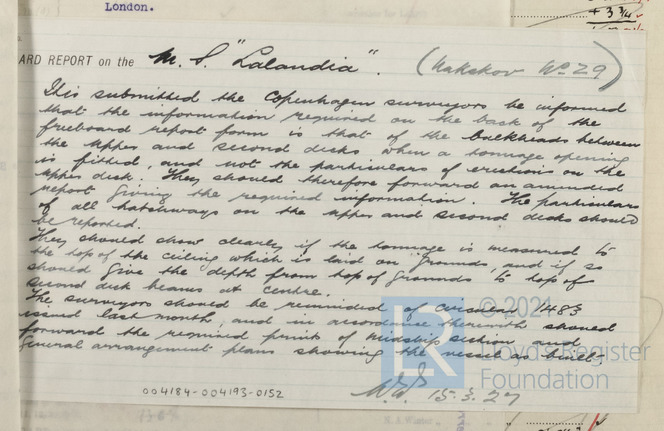 London.
+ 3 3/4
ARD REPORT on the M.S. "Lalandia". (Nakskov No 29)
It is submitted the Copenhagen surveyors be informed
that the information required on the back of the
freeboard report form is that of the bulkheads between
the upper and second decks when a tonnage opening
is fitted, and not the particulars of erections on the
upper deck. They should therefore forward an amended
report giving the required information. The particulars
of all hatchways on the upper and second decks should
be reported.
They should show clearly if the tonnage is measured to
the top of the ceiling which is laid on grounds, and if so
should give the depth from top of grounds to top of
second deck beams at centre.
The surveyors should be reminded of circular 1483
issued last month, and in accordance therewith should
forward the required prints of midship section and
General arrangement plans showing the vessel as built.
15.3.27
004184-004193-0152
LR
© 2021
Lloyd's Register
Foundation